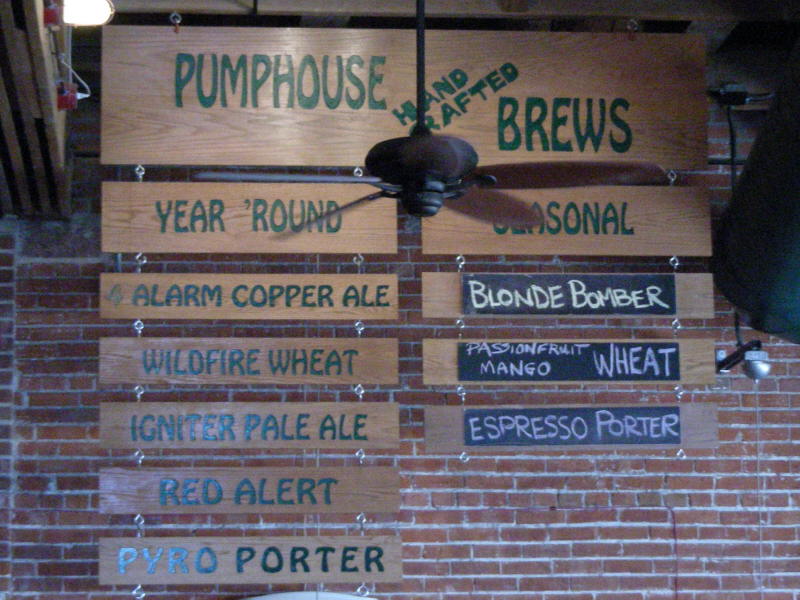 PUMPHOUSE HAND CRAFTED BREWS
YEAR 'ROUND
4 ALARM COPPER ALE
WILDFIRE WHEAT
IGNITER PALE ALE
RED ALERT
PYRO PORTER
SEASONAL
BLONDE BOMBER
PASSIONFRUIT MANGO WHEAT
ESPRESSO PORTER